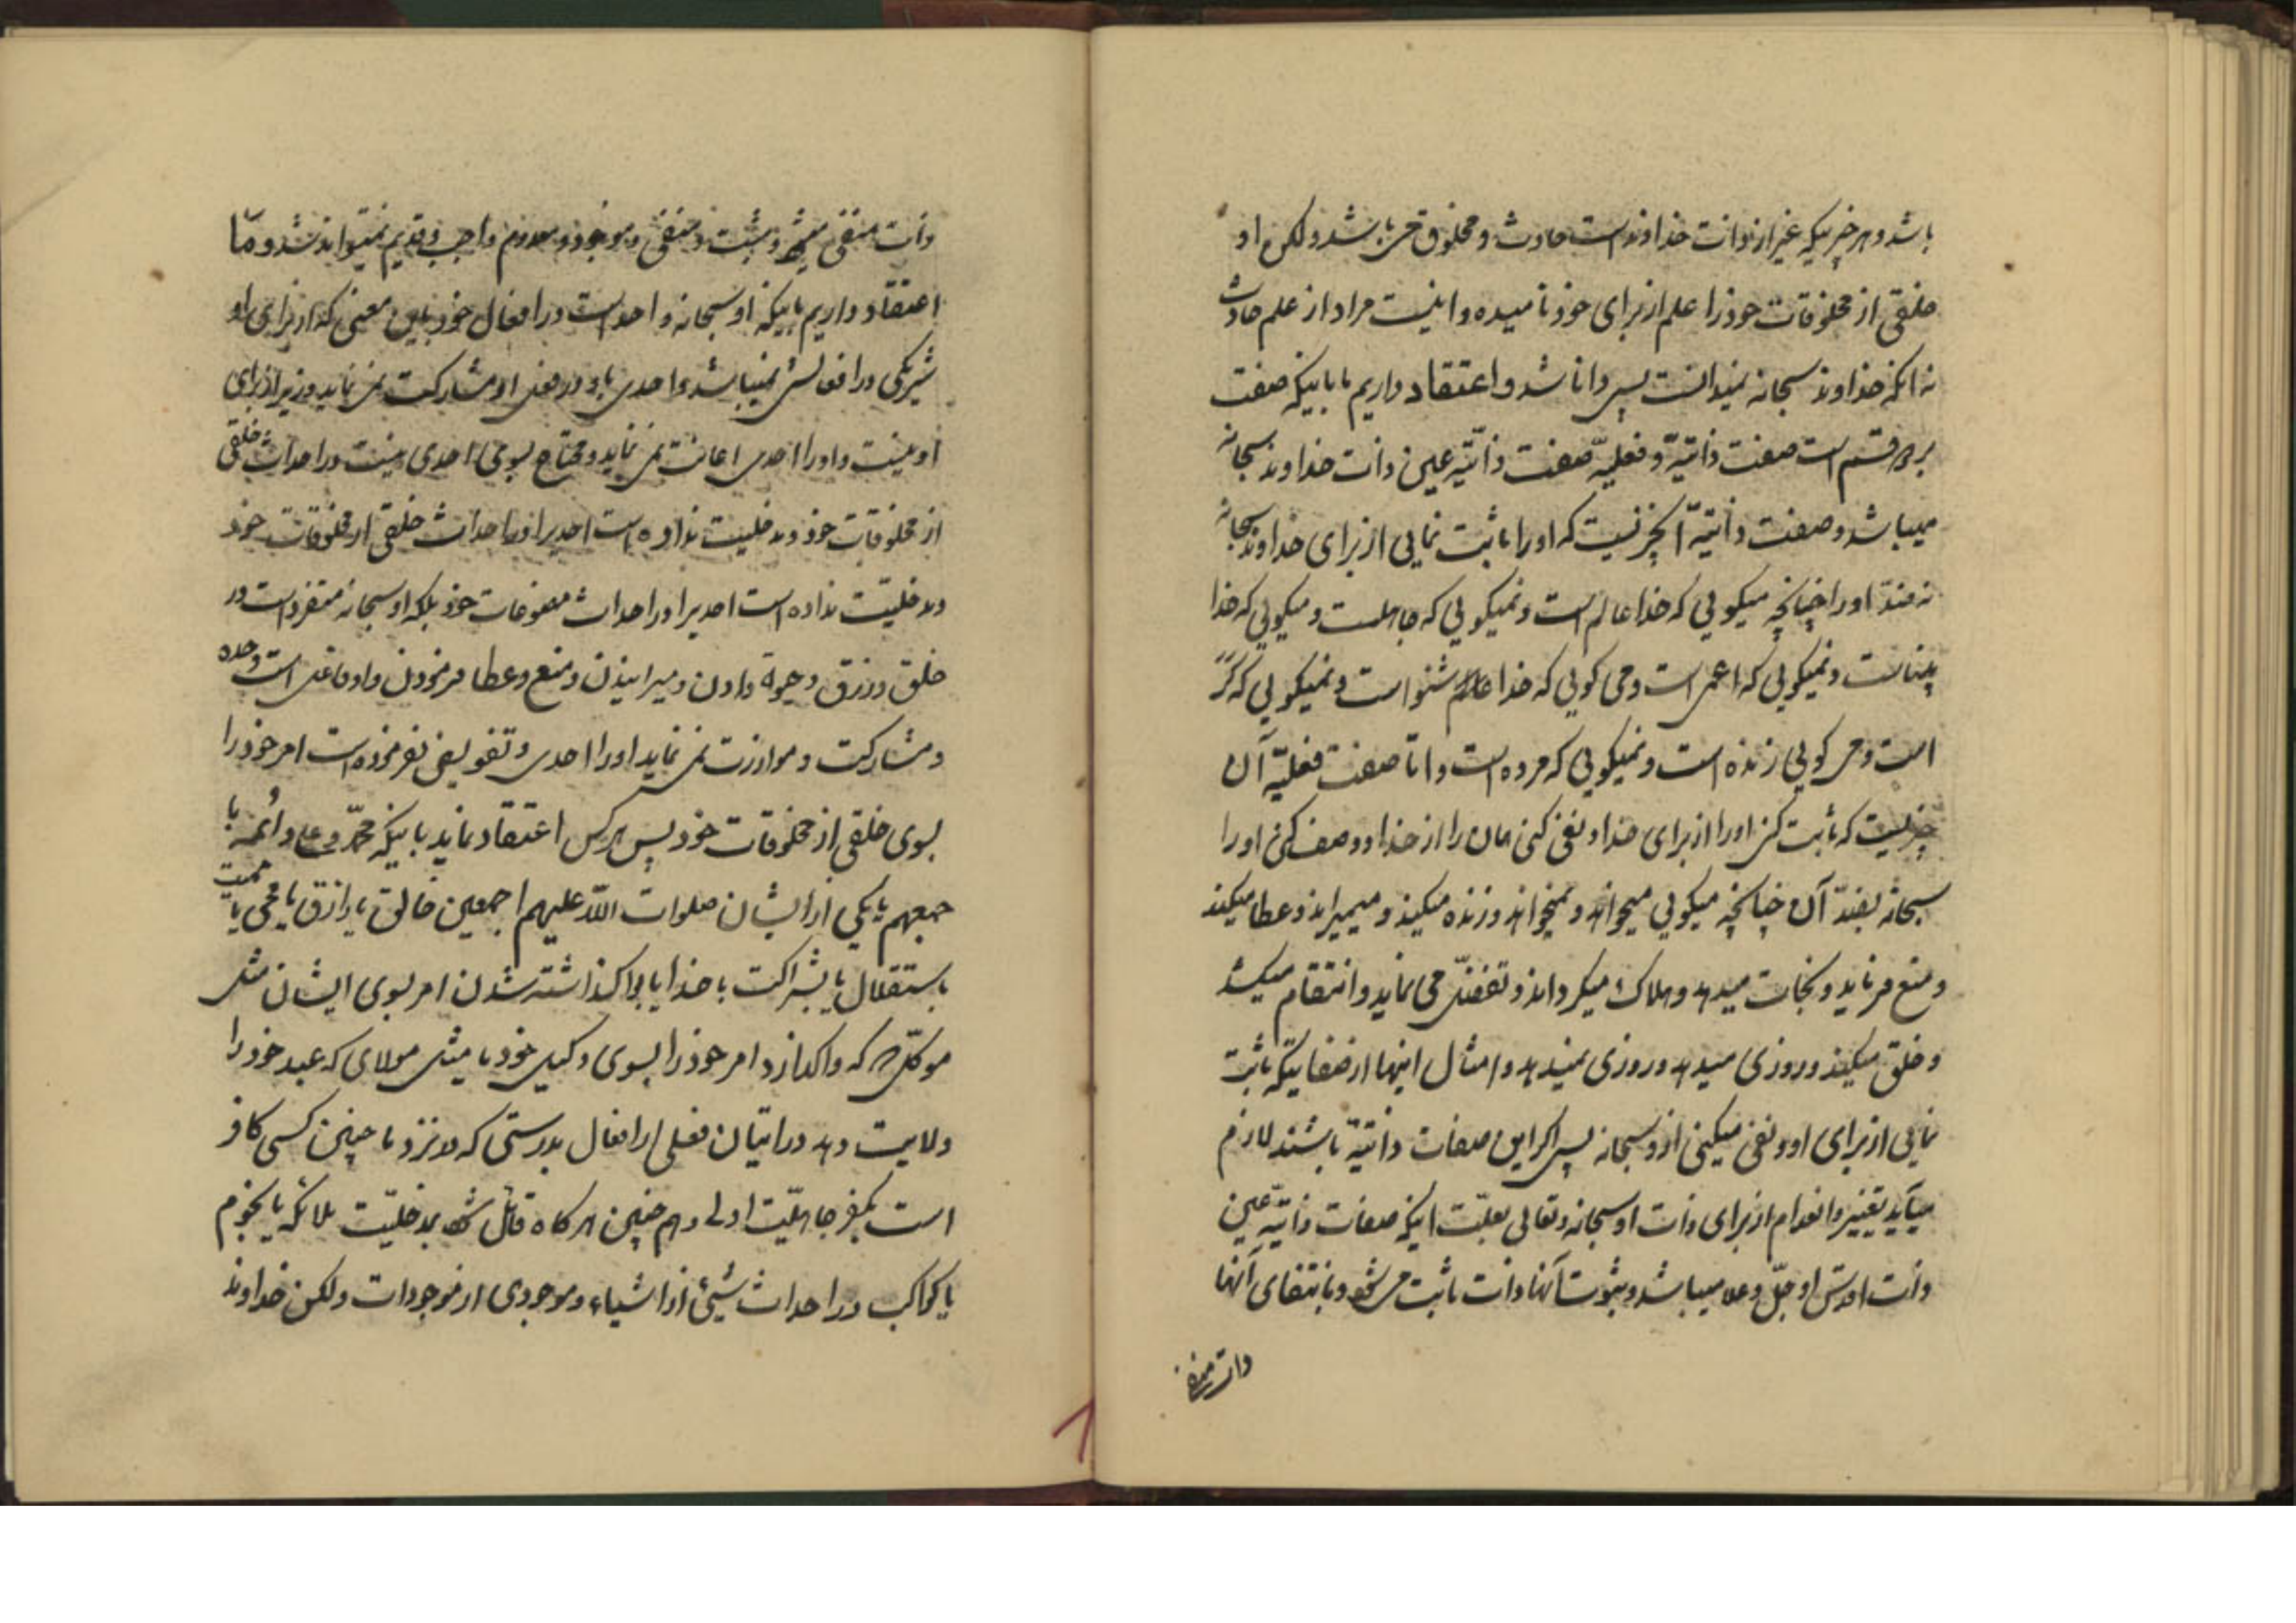 باشد و هر چیزیکه غیر از ذات خداوند است حادث و مخلوق می باشد و لکن او
خلقی از مخلوقات خود را علم از برای خود نامیده و اینست مراد از علم حادث
نه انکه خداوند سبحانه نمیدانست پس دانا شد و اعتقاد داریم ما باینکه صفت
بر دو قسم است صفت ذاتیّه و فعلیّه صفت ذاتیّه عین ذات خداوند سبحانه
میباشد و صفت ذاتیّه آنچیزیست که او را ثابت نمایی از برای خداوند سبحانه
نه ضدّ او را چنانچه میکویی که خدا عالم است و نمیکویی که جاهلست و میکویی که خدا
بیناست و نمیکویی که اعمی است و می کویی که خدا شنواست و نمیکویی که کر
است و می کویی زنده است و نمیکویی که مرده است و امّا صفت فعلیّه آن
چیزیست که ثابت کنی او را از برای خدا و نفی کنی همان را از خدا و وصف کنی او را
سبحانه بضدّ آن چنانچه میکویی میخواهد و نمیخواهد و زنده میکند و میمیراند و عطا میکند
و منع میفرماید و نجات میدهد و هلاک میکرداند و تفضّل می نماید و انتقام میکشد
و خلق میکند و روزی میدهد و روزی نمیدهد و امثال اینها از صفاتیکه ثابت
نمایی از برای او و نفی میکنی از او سبحانه پس اکر این صفات ذاتیّه باشند لازم
میآید تغییر و انعدام از برای ذات او سبحانه و تعالی بعلّت اینکه صفات ذاتیّه عین
ذات اقدس او جلّ و علا میباشد و بثبوت آنها ذات ثابت می شود و بانتفای آنها
ذات منتفی
ذات منتفی میشود و مثبت و منتفی و موجود و معدوم واجب و قدیم نمیتواند شد و ما
اعتقاد داریم باینکه او سبحانه واحد است در افعال خود باین معنی که از برای او
شریکی در افعالش نمیباشد و احدی با او در فعل او مشارکت نمی نماید و وزیر از برای
او نیست و او را احدی اعانت نمی نماید و محتاج بسوی احدی نیست در احداث خلقی
از مخلوقات خود و مدخلیت نداده است احدیرا در احداث خلقی از مخلوقات خود
و مدخلیّت نداده است احدیرا در احداث مصنوعات خود بلکه او سبحانه متفرد است در
خلق و رزق و حیوة دادن و میرانیدن و منع و عطا فرمودن و او فاعل است وحده
و مشارکت و موازرت نمی نماید او را احدی و تفویض نفرموده است امر خود را
بسوی خلقی از مخلوقات خود پس هرکس اعتقاد نماید باینکه محمّد و علی و ائمه یا
جمیعهم یا یکی از ایشان صلوات اللّه علیهم اجمعین خالق یا رازق یا محیی یا ممیت
باستقلال یا بشراکت با خدا یا بواکذاشته شدن امر بسوی ایشان مثل
موکّلی که واکذارد امر خود را بسوی وکیل خود یا مثل مولای که عبد خود را
ولایت دهد در اتیان فعلی از افعال بدرستی که در نزد ما چنین کسی کافر
است بکفر جاهلیّت اولی و هم چنین هرکاه قائل شود بمدخلیّت ملائکه یا نجوم
یا کواکب در احداث شیئ از اشیاء و موجودی از موجودات و لکن خداوند